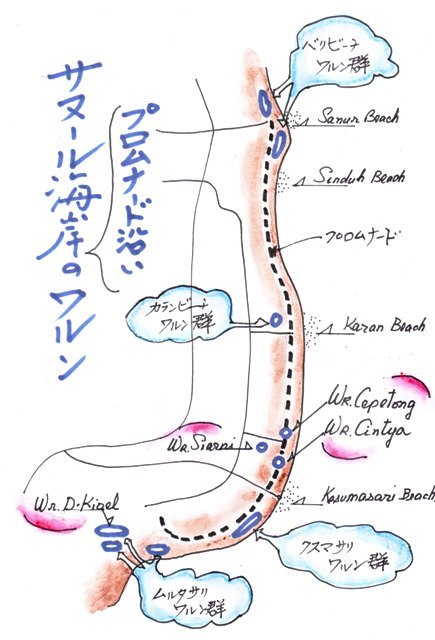 サヌール海岸のワルン
プロムナード沿い
ベリビーチ
ワルン群
Sanur Beach
Sinduh Beach
プロムナード
カランビーチ
ワルン群
Karan Beach
Wr. Cepotong
Wr. Cintya
Wr. Siarai
Kasumasari Beach
Wr. D. Kigel
クスマサリ
ワルン群
ムルタサリ
ワルン群